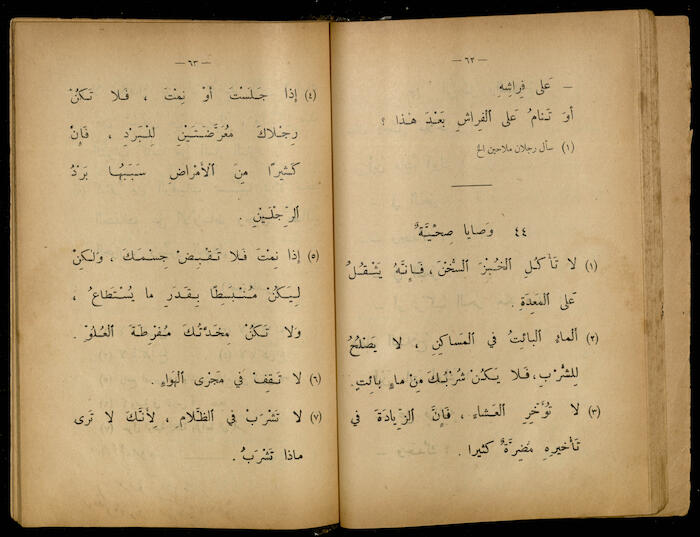 — ٦٢ —
— عَلى فِراشِهِ
أوَ تَنامُ عَلى الفِراشِ بَعْدَ هٰذا ؟
(١) سأل رجلان ملاحين الخ
٤٤ وَصايا صِحِّيَّةٌ
(١) لا تَأكُلِ الخُبْزَ السُّخْنَ ، فَإنَّهُ يَثْقُلُ
عَلى المَعِدَةِ .
(٢) ألماءُ البائِتُ في المَساكِنِ ، لا يَصْلُحُ
لِلشُّرْبِ ، فَلا يَكُنْ شُرْبُكَ مِنْ ماءٍ بائِتٍ .
(٣) لا تُؤَخِّرِ العَشاءَ ، فَإنَّ الزِّيادَةَ في
تَأخيرِهِ مُضِرَّةٌ كَثيرا .
— ٦٣ —
(٤) إذا جَلَسْتَ أوْ نِمْتَ ، فَلا تَكُنْ
رِجْلاكَ مُعَرَّضَتَيْنِ لِلْبَرْدِ ، فَإنَّ
كَثيرًا مِنَ الأمْراضِ سَبَبُها بَرْدُ
الرِّجْلَيْنِ .
(٥) إذا نِمْتَ فَلا تَقْبِضْ جِسْمَكَ ، وَلكِنْ
لِيَكُنْ مُنْبَسِطًا بِقَدَرِ ما يُسْتَطاعُ ،
وَلا تَكُنْ مِخَدَّتُكَ مُفرِطَةَ العُلُوِّ .
(٦) لا تَقِفْ في مَجْرى الهَواءِ .
(٧) لا تَشْرَبْ في الظَّلامِ ، لأنَّكَ لا تَرى
ماذا تَشْرَبُ .